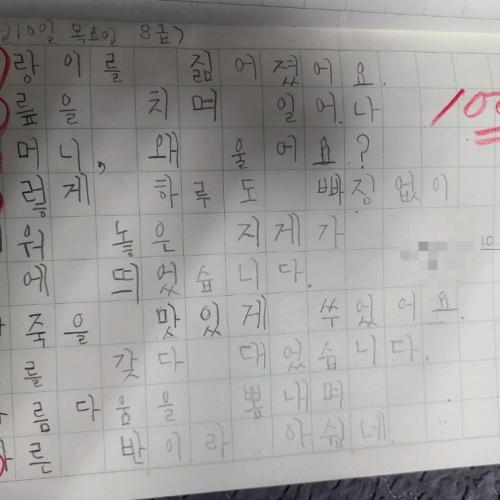 월10일 목요일 8급>
랑이를 젊어졌어요.
릎을 치며 일어나
머니, 왜 울어요?
렇게 하루도 빠짐없이
워 놓은 지게가
에 띄었습니다.
죽을 맛있게 쑤었어요.
를 갖다 대었습니다.
름다움을 뽐내며
른 반이라 아쉽네.
100
10